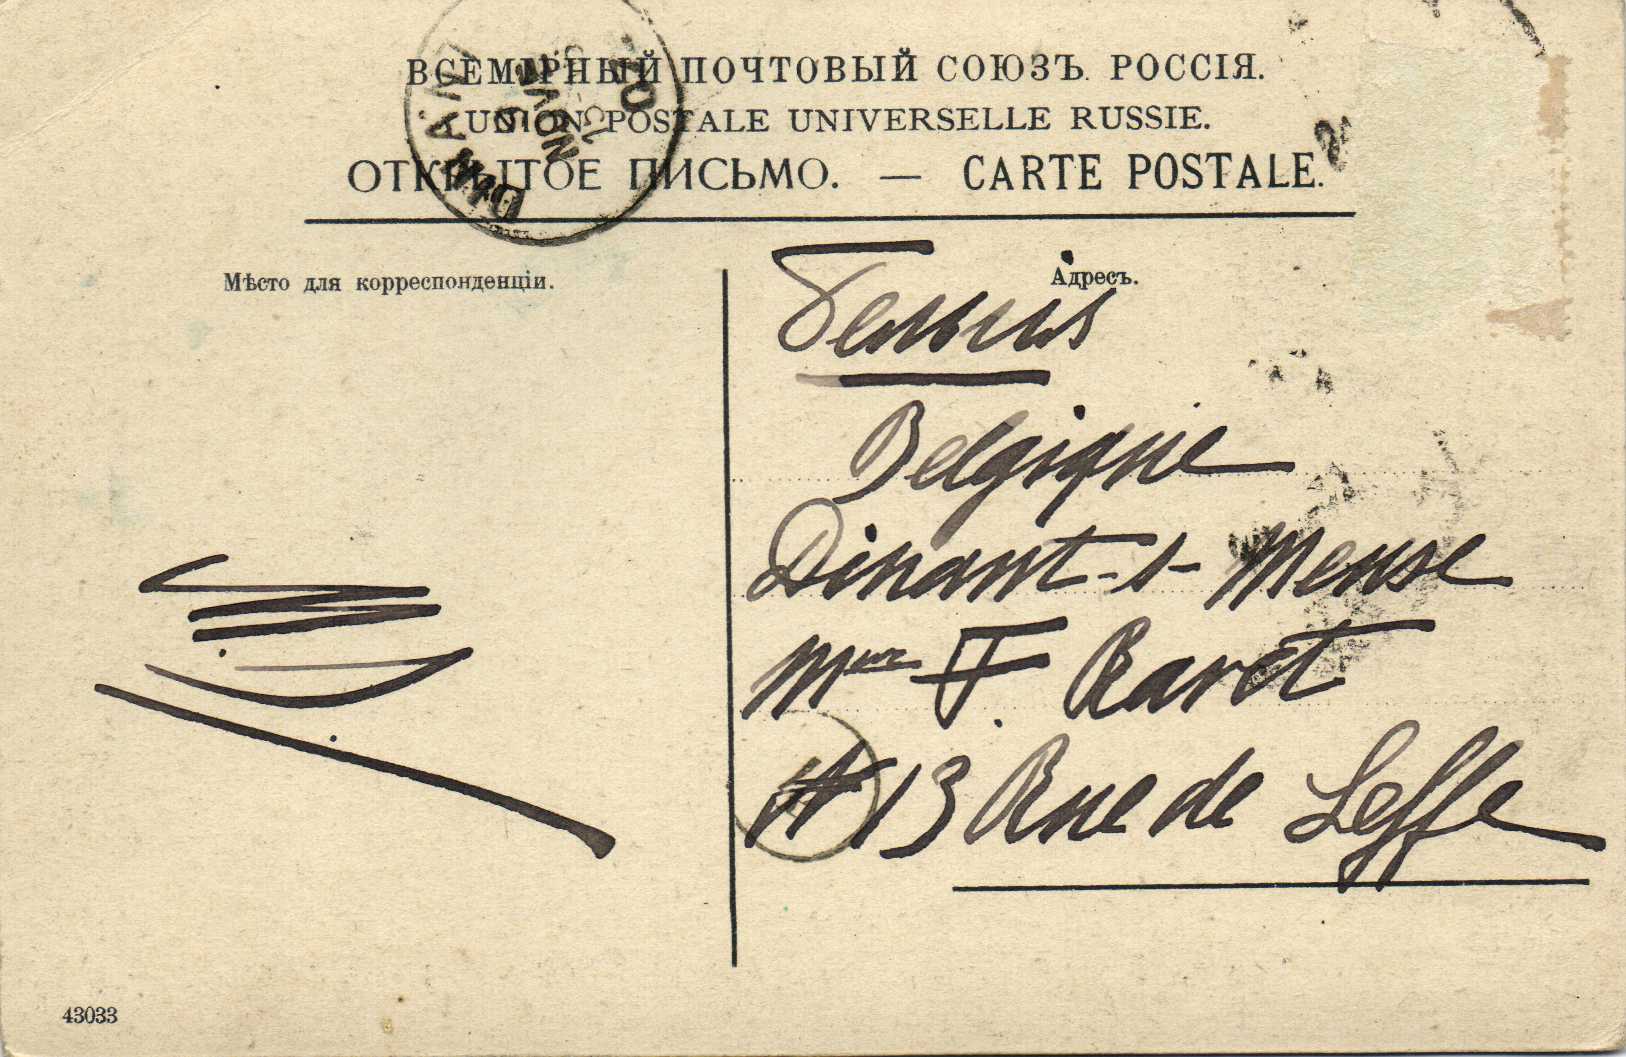 ВСЕМІРНЫЙ ПОЧТОВЫЙ СОЮЗЪ. РОССІЯ.
UNION POSTALE UNIVERSELLE RUSSIE.
ОТКРЫТОЕ ПИСЬМО. — CARTE POSTALE.
Мѣсто для корреспонденціи.
Адресъ.
Belgique
Dinant-s-Meuse
Mme F. Ravet
13 Rue de Leffe
43033
DINANT